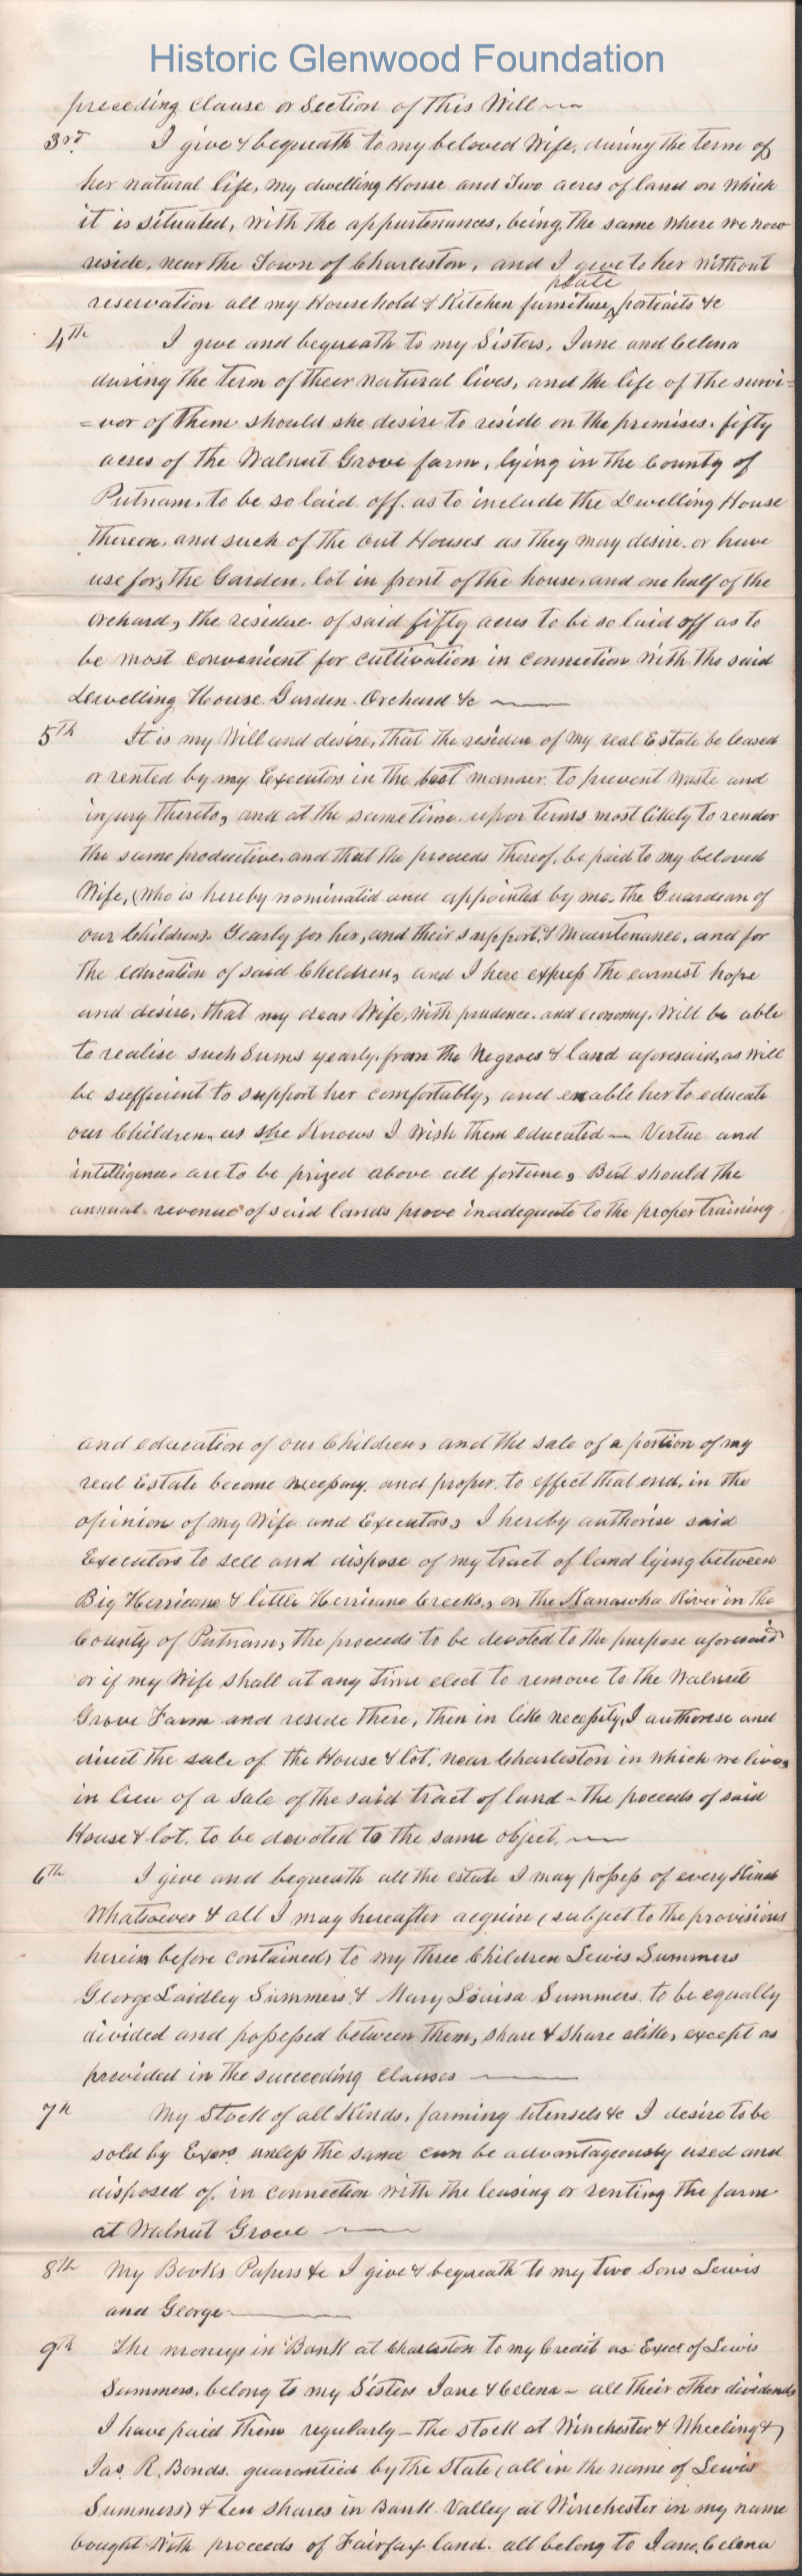 Historic Glenwood Foundation
preceding clause or Section of this Will
3rd I give & bequeath to my beloved Wife, during the term of
her natural life, my dwelling House and Two acres of land on which
it is situated, with the appurtenances, being the same where we now
reside, near the Town of Charleston, and I give to her without
plate
reservation all my Household & Kitchen furniture, portraits &c
4th I give and bequeath to my Sisters, Jane and Celena
during the term of their natural lives, and the life of the survi-
=vor of them should she desire to reside on the premises, fifty
acres of the Walnut Grove farm, lying in the County of
Putnam, to be so laid off as to include the Dwelling House
thereon, and such of the out Houses as they may desire or have
use for, the Garden, lot in front of the house, and one half of the
Orchard, the residue of said fifty acres to be so laid off as to
be most convenient for cultivation in connection with the said
Dwelling House. Garden. Orchard &c
5th It is my Will and desire, that the residue of my real Estate be leased
or rented by my Executors in the best manner to prevent waste and
injury thereto, and at the same time upon terms most likely to render
the same productive, and that the proceeds thereof, be paid to my beloved
Wife, (who is hereby nominated and appointed by me the Guardian of
our Children) Yearly for her, and their support, & maintenance, and for
the education of said Children, and I here express the earnest hope
and desire, that my dear Wife, with prudence and economy, will be able
to realise such Sums yearly, from the Negroes & land aforesaid, as will
be sufficient to support her comfortably, and enable her to educate
our Children, as she Knows I wish them educated — Vertue and
intelligence are to be prized above all fortune, But should the
annual revenue of said lands prove inadequate to the proper training
and education of our Children, and the sale of a portion of my
real Estate become necessary and proper to effect that end, in the
opinion of my Wife and Executors, I hereby authorise said
Executors to sell and dispose of my tract of land lying between
Big Herricane & little Herricane Creeks, on the Kanawha River in the
County of Putnam, the proceeds to be devoted to the purpose aforesaid
or if my Wife shall at any time elect to remove to the Walnut
Grove Farm and reside there, then in like necessity, I authorise and
direct the sale of the House & lot, near Charleston in which we live,
in lieu of a sale of the said tract of land - the poceeds of said
House & lot, to be devoted to the same object,
6th I give and bequeath all the estate I may possess of every Kind
Whatsoever & all I may hereafter acquire (subject to the provisions
herein before contained) to my three Children Lewis Summers
George Laidley Summers & Mary Louisa Summers to be equally
divided and possessed between them, share & share alike, except as
provided in the succeeding Clauses
7th My Stock of all Kinds, farming Utensels &c I desire to be
sold by Exors unless the same can be advantageously used and
disposed of, in connection with the leasing or renting the farm
at Walnut Grove
8th My Books Papers &c I give & bequeath to my two Sons Lewis
and George
9th The moneys in Bank at Charleston to my Credit as Exect of Lewis
Summers, belong to my Sisters Jane & Celena - all their other dividends
I have paid them regularly - the stock at Winchester & Wheeling &
Jas. R. Bonds. guarantied by the State (all in the name of Lewis
Summers) & ten shares in Bank Valley at Winchester in my name
bought with proceeds of Fairfax land. all belong to Jane, Celena